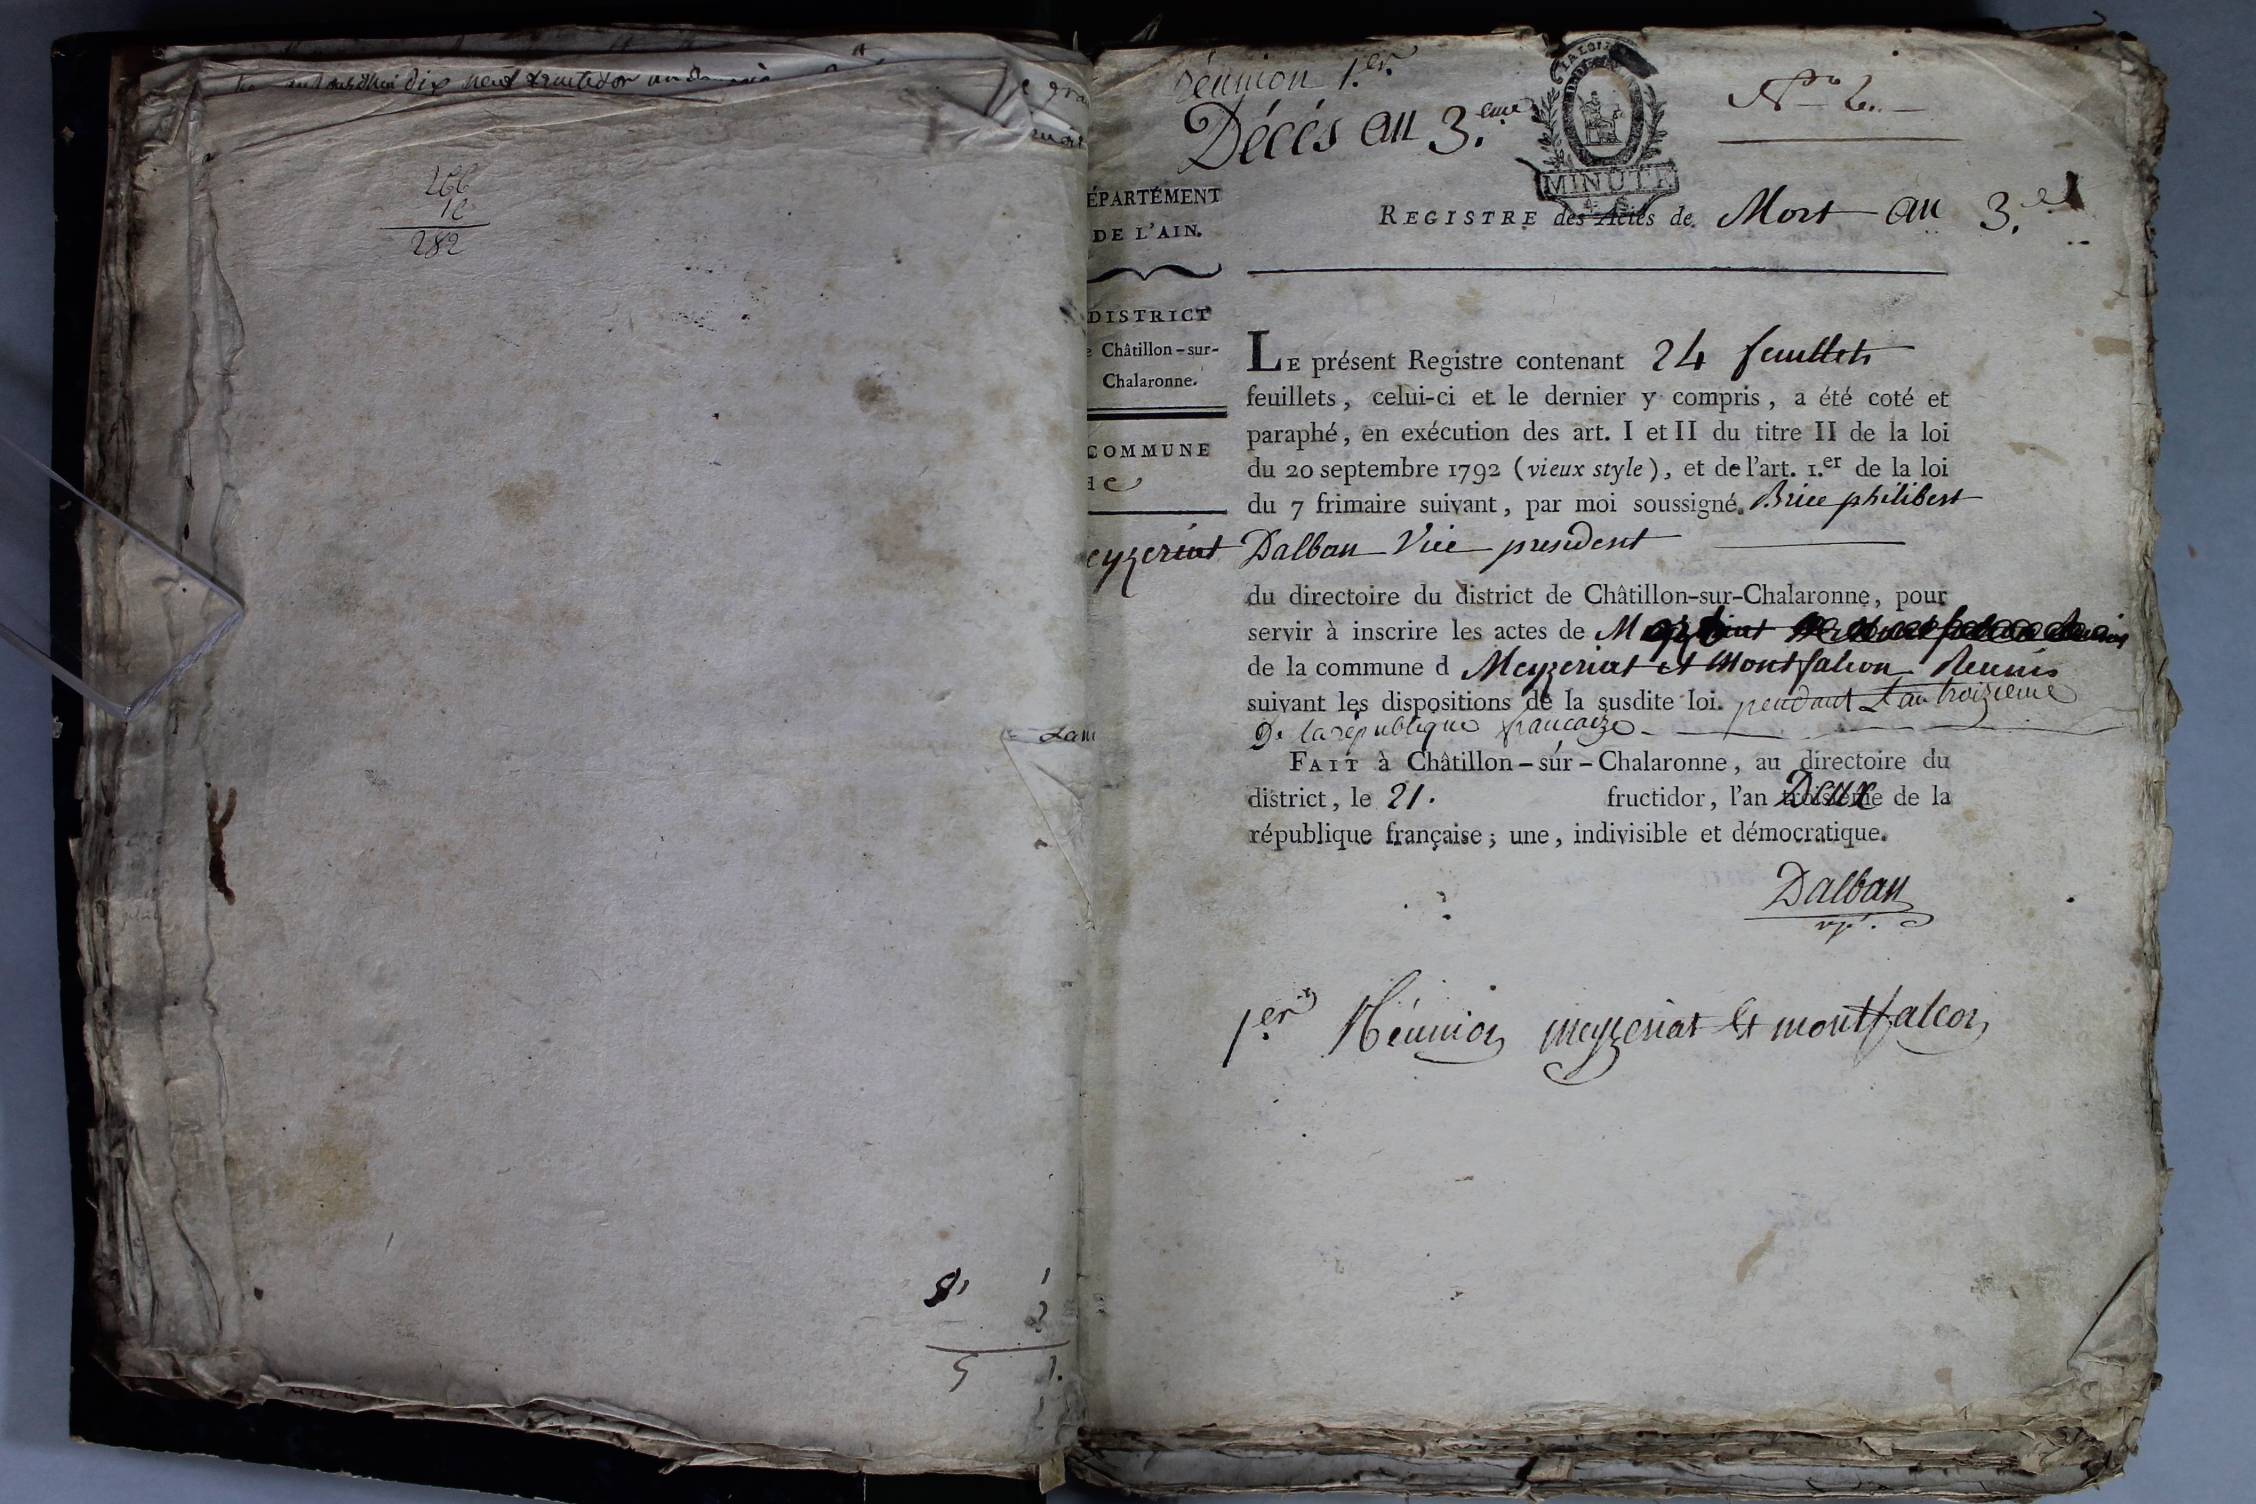 dix neuf fructidor
266
16
282
8 1
2
5 1.
Réunion 1.er
Décés an 3.eme
LA LOI
MINUTE
N.º 2.
ÉPARTEMENT
DE L'AIN.
DISTRICT
e Châtillon-sur-
Chalaronne.
COMMUNE
de
eyzeriat
REGISTRE des Actes de Mort an 3.e
LE présent Registre contenant 24 feuillets
feuillets, celui-ci et le dernier y compris, a été coté et
paraphé, en exécution des art. I et II du titre II de la loi
du 20 septembre 1792 (vieux style), et de l'art. 1.er de la loi
du 7 frimaire suivant, par moi soussigné. Brice philibert
Dalban Vice president
du directoire du district de Châtillon-sur-Chalaronne, pour
servir à inscrire les actes de
de la commune d Meyzeriat et Montfalcon Reunis
suivant les dispositions de la susdite loi. pendant L'an troizieme
De la république francaize
FAIT à Châtillon-sur-Chalaronne, au directoire du
district, le 21. fructidor, l'an Deux de la
république française; une, indivisible et démocratique.
Dalban
vp.
1er Réunion meyzeriat & montfalcon